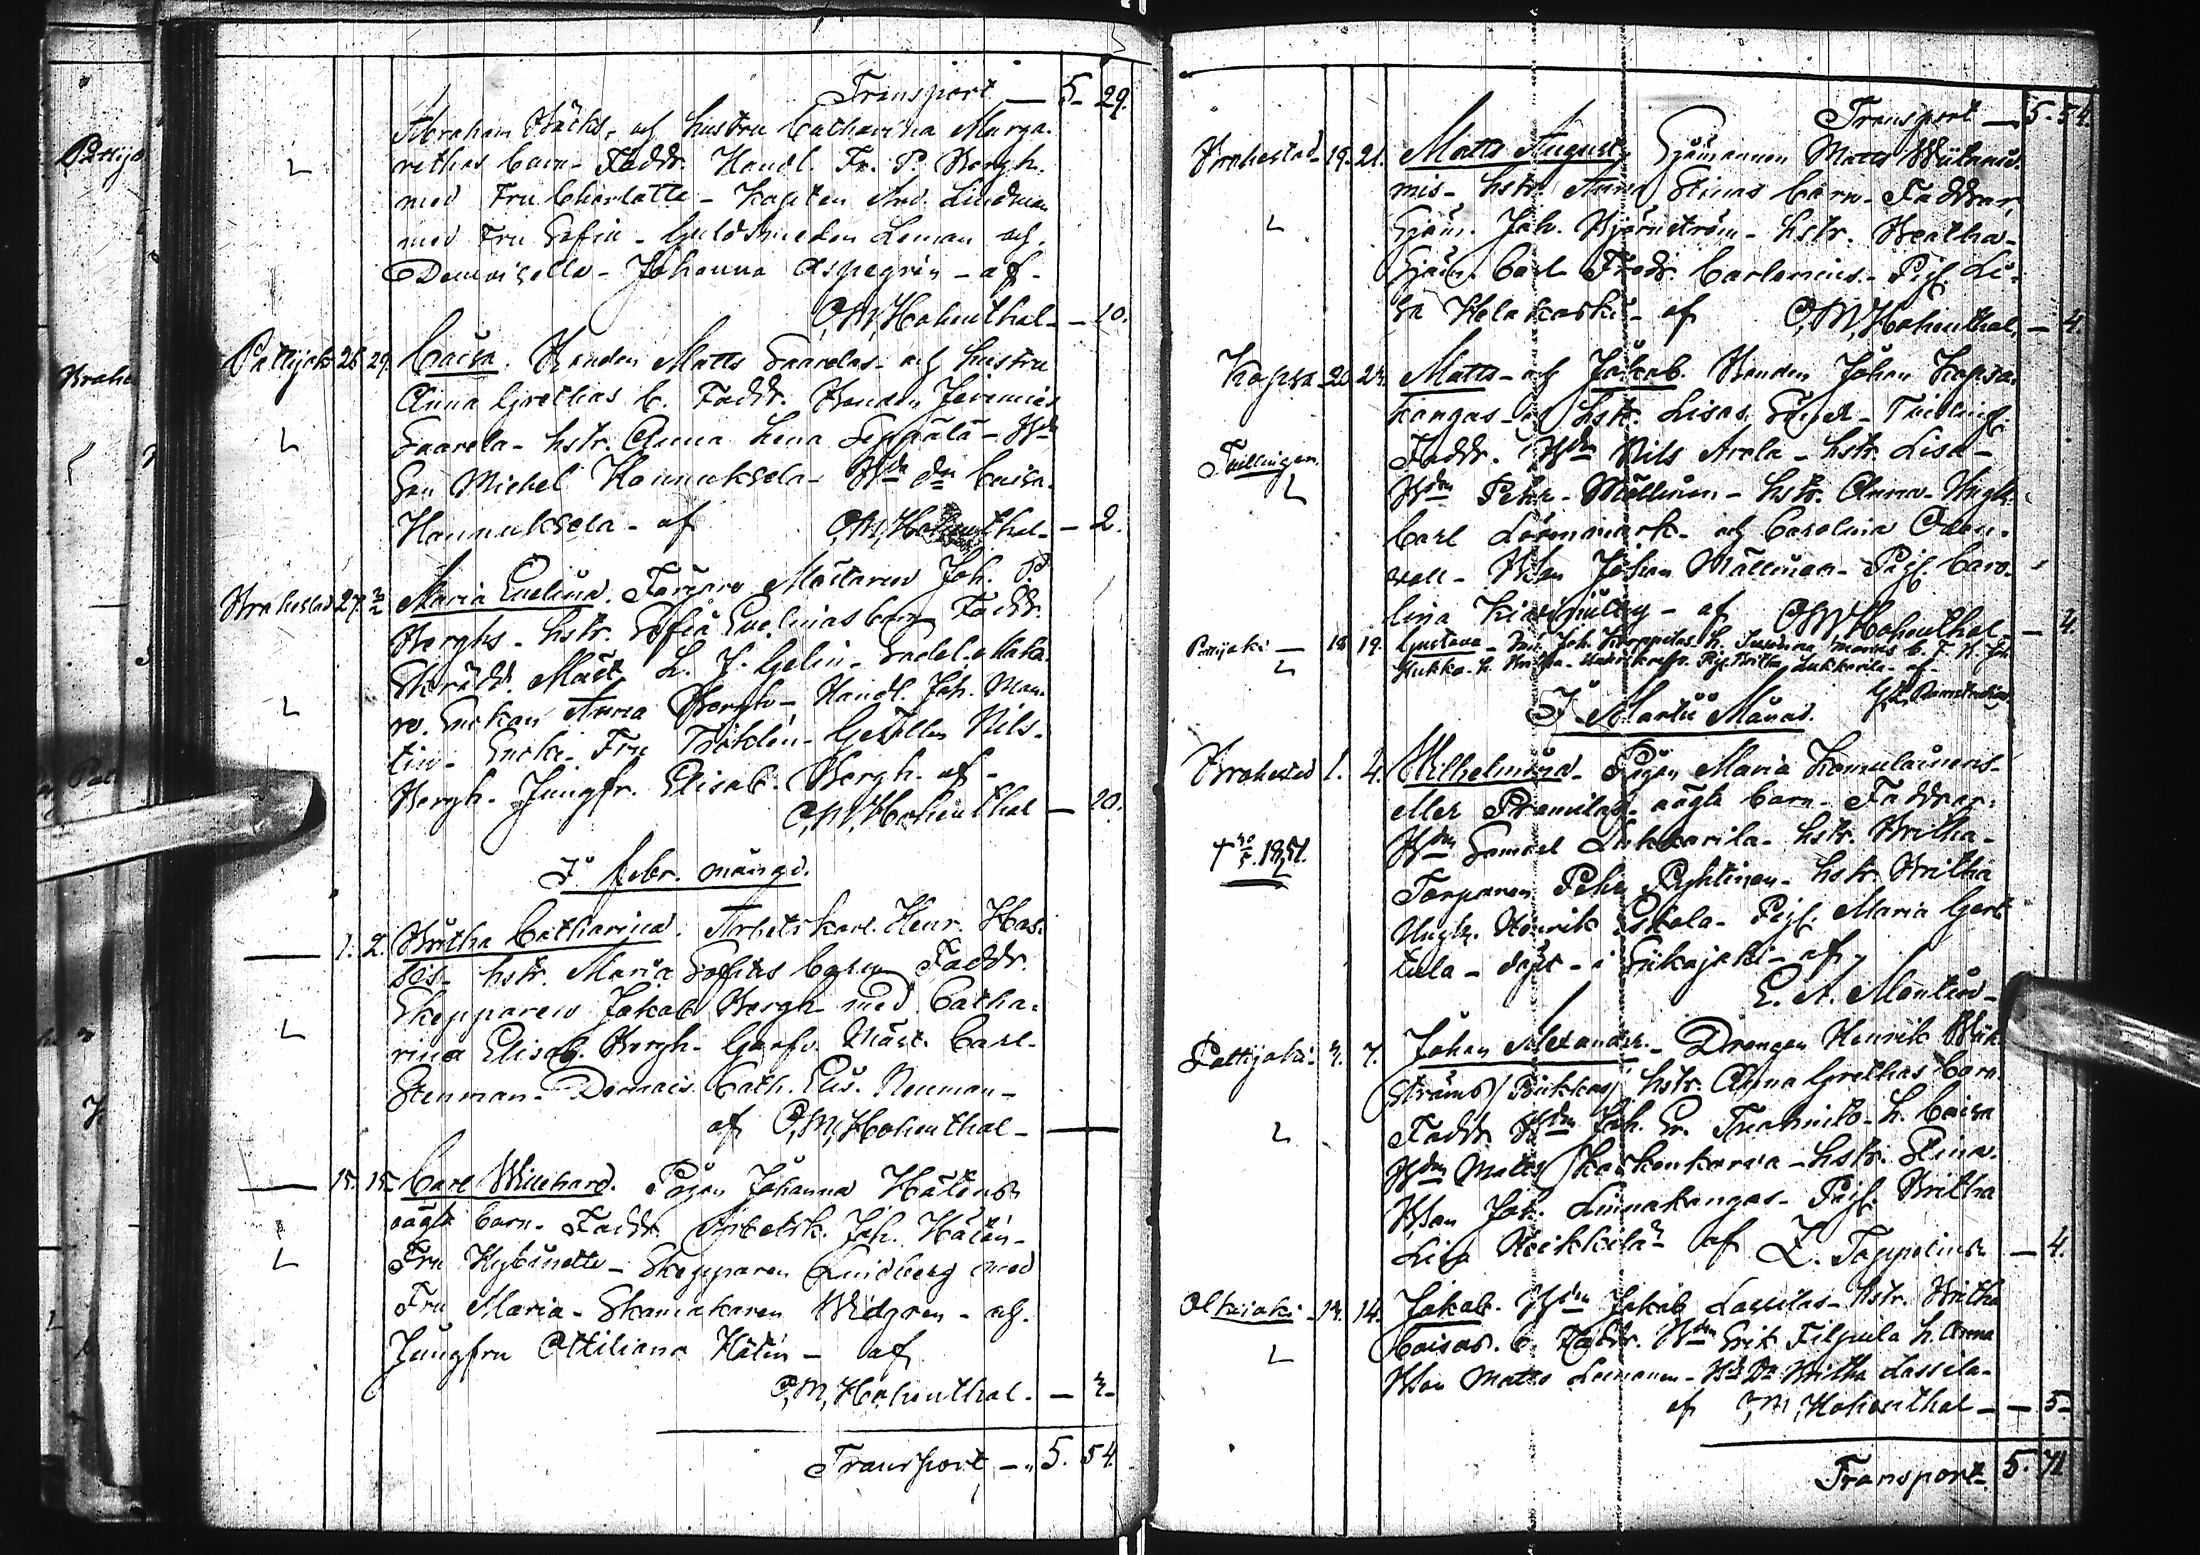 Transport — 5. 29.
Abraham Bäcks, och hustru Catharina Marga-
rethas barn. Faddr. Handl. Fr. P. Bergh
med Fru Charlotte - Kapten And. Lindman
med Fru Sofia - Guldsmeden Leman och
Demoiselle - Johanna Aspegrén - af -
C,M,Hohenthal - — 10.
Pattijoki 26 29. Caisa. Bonden Matts Saarelas - och hustru
Anna Grethas b. Faddr. Bonden Jeremias
Saarela - hstr. Anna Lena Seppälä - Bde
Son Michel Hannuksela - Bde dr Caisa
Hannuksela - af C,M,Hohenthal - — 2.
Brahestad 27. Maria Evelina. Färgare Mästaren Joh. P
Berghs - hstr. Sofia Evelinas barn Faddr.
Skrädd. Mäst. L. J. Gelin - Sadel-Maka-
re. Enkan Anna Bergh - Handl. Joh. Mon-
tin - Enke Fru - Gesällen Nils
Bergh. Jungfr. Elisab. Bergh - af -
C,M,Hohenthal — 20.
I febr. månad.
— 1. 2. Britha Catharina. Arbets karl. Henr. Has-
sis - hstr. Maria Sofias barn Faddr.
Skepparen Jakob Bergh med Catha-
rina Elisab. Bergh - Garfv. Mäst. Carl
Stenman - Demois. Cath. Elis. Neuman -
af C,M,Hohenthal - —
— 15. 15. Carl Wilehard. Pigan Johanna Håténs
oägta barn - Faddr. Arbetsk. Joh. Håtén -
Fru Hybinette - Skepparen Lindberg med
Fru Maria - Skomakaren Widgren - och
Jungfru Ottiliana Håtén - af
C,M,Hohenthal. — 3 -
Transport — 5. 54
Transport — 5. 54.
Brahestad - 19. 21. Matts August. Sjömannen Matts
mis - hstr. Anna Stinas barn - Faddrar,
Sjöm. Joh. Björnström - hstr. Beatha -
Sjöm. Carl Fredr. Carlenius - Pig. Li-
sa Kelakoski - af C,M,Hohenthal — 4.
Kopsa 20 24. Matts - och Jakob. Bonden Johan Kopsa-
kangas - och hstr. Lisas Tvilling.
Tvillingar. Faddr. Bden Nils Arola - hstr. Lisa -
Bden Pehr - Mällinen - hstr. Anna - Ungk.
Carl Lönnmark - och Carolina Oden-
wall - Bson Johan Mällinen - Pig. Caro-
lina - af C,M,Hohenthal — 4.
Pattijoki — 18 19. Gustava - Joh. h. b. F.
Hukka h. Britha -
I Martii Månad.
Brahestad 1. 4. Wilhelmina - Pigan Maria Komulainens -
eller oägta barn - Faddrar:
Bden Samuel Lukkarila - hstr. Britha -
† 10/5. 1851. Torparen Pehr Pyhtinen - hstr. Britha
Ungk. Henrik Eskola - Pig. Maria Gert-
tula - döpt - i Siikajoki - af
E. A. Montin -
Pattijoki - 3. 7. Johan Alexander. - Drängen Henrik Wik-
ströms / / hstr. Anna Grethas barn.
Faddr. Bden Joh. Er. Tuomito - h. Caisa
Bden Matts Koskenkorva - hstr. Stina
Bson Joh. Linnakangas - Pig. Britha
Lisa Heikkilä - af Z. Toppelius — 4.
Olkijoki - 13. 14. Jakob. Bden Jakob Lassilas - hstr. Britha
Caisas b. Faddr. Bden Erik Filpula h. Anna
Bson Matts Lemonen - Bde Dr Britha Lassila -
af C,M,Hohenthal — — 5 -
Transport 5. 71